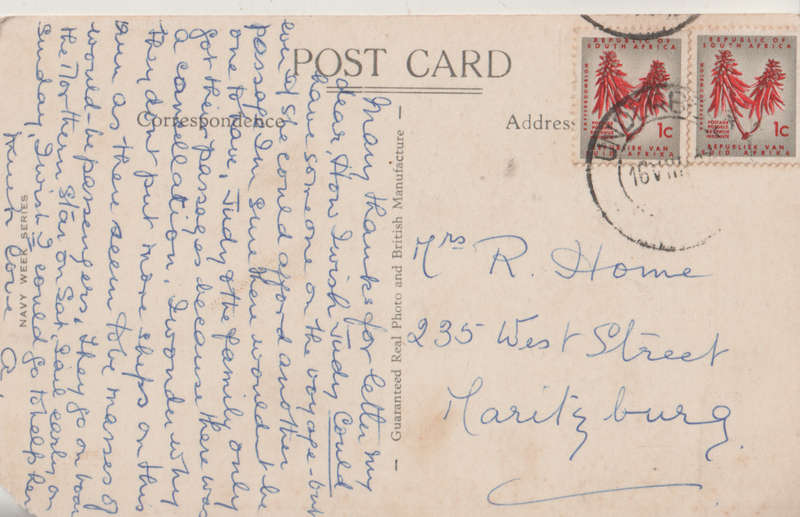 POST CARD
Correspondence
Address
Guaranteed Real Photo and British Manufacture
NAVY WEEK SERIES
REPUBLIC OF
SOUTH AFRICA
KAFFERBOOMBLOM
POSTAGE
1c
REPUBLIEK VAN
SUID AFRIKA
REPUBLIC OF
SOUTH AFRICA
KAFFERBOOMBLOM
POSTAGE
1c
REPUBLIEK VAN
SUID AFRIKA
16 VII
Mrs R. Home
235 West Street
Maritzburg
Many thanks for letter my
dear. How I wish Judy Could
have someone on the voyage - but
even if she could afford another
passage I'm sure there wouldn't be
one to have, Judy & the family only
got their passages because there was
a cancellation. I wonder why
they don't put more ships on this
run as there seem to be masses of
would-be passengers. They go on board
the Northern Star on Sat, sail early on
Sunday, I wish I could go to help her
Much love
A.